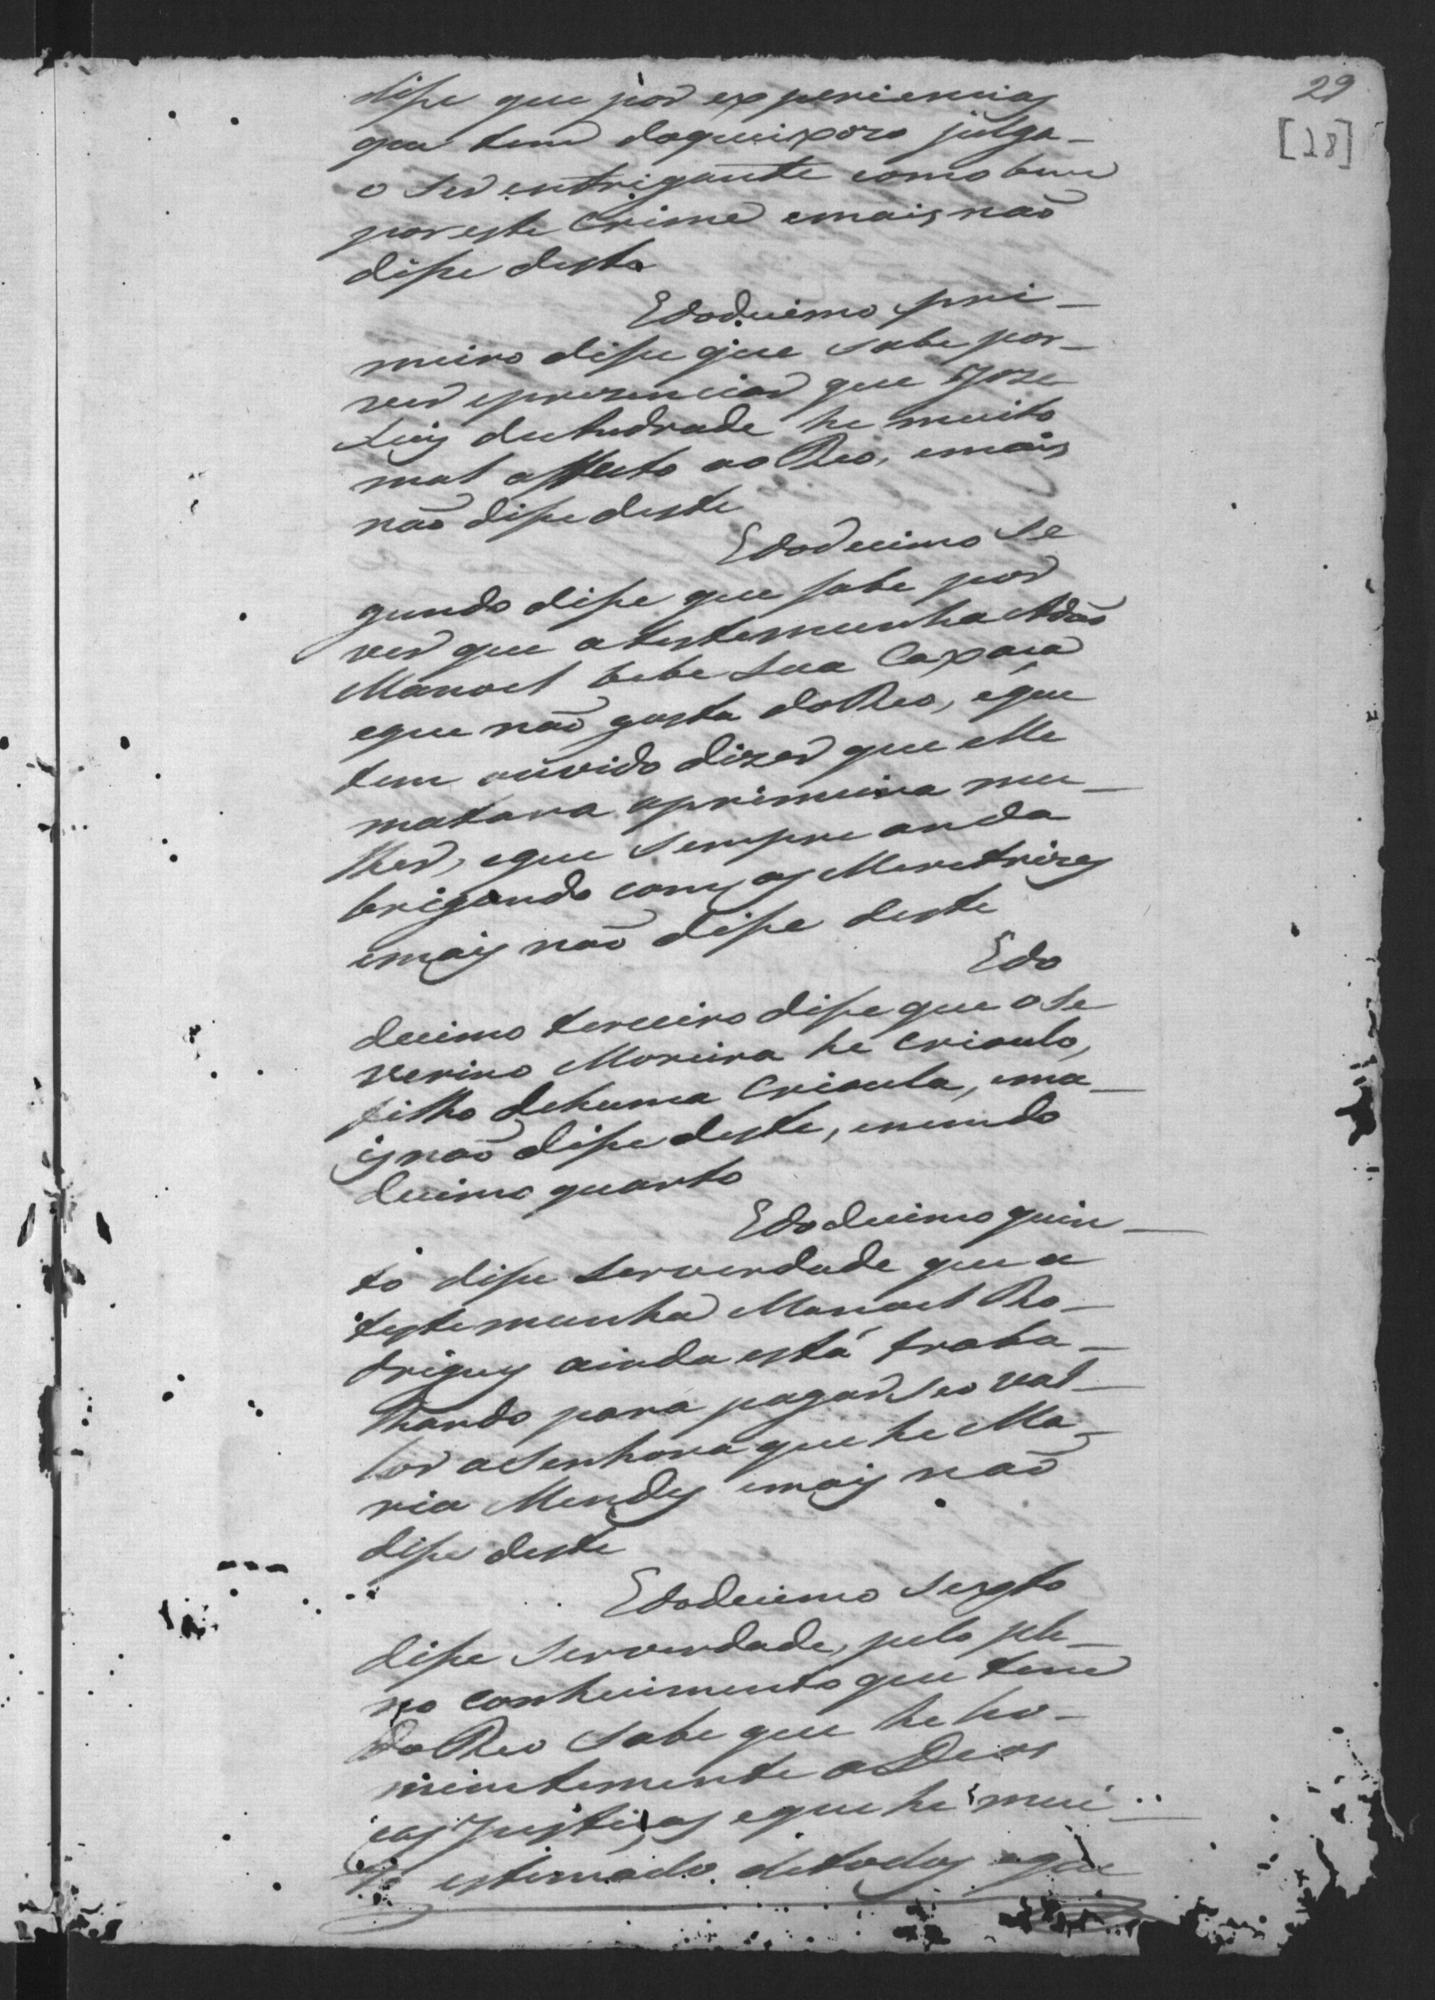 29
[28]
dise que por experiencias
que tem doqueixozo julga-
o ser entrigante como bem
por este Crime emais não
dise desto
Edodecimo pri-
meiro dise que sabe por
ver eprezenciar que Joze
Luis deAndrade he muito
mal affecto ao Reo, emais
não dise deste
Edodecimo se
gundo dise que sabe por
ver que atestemunha Adão
Manoel bebe sua Caxaça
eque não gosta doReo, eque
tem ouvido dizer que elle
matara aprimeira mu-
lher, eque sempre anda
brigando com as Meretrizes
emais não dise deste
Edo
decimo terceiro dise que oSe
verino Moreira he Crioulo,
filho dehuma Crioula, ema-
is não dise deste, enemdo
decimo quarto
Edodecimo quin-
to dise serverdade que a
testemunha Manoel Ro-
drigues ainda está traba-
lhando para pagar seo val-
lor aSenhora que he Ma-
ria Mendes emais não
dise deste
Edodecimo sexto
dise serverdade, pelo ple-
no conhecimento que tem
doReo sabe que he ho-
mem temente aDeos
eas Justiças eque he mui-
to estimado detodos eque